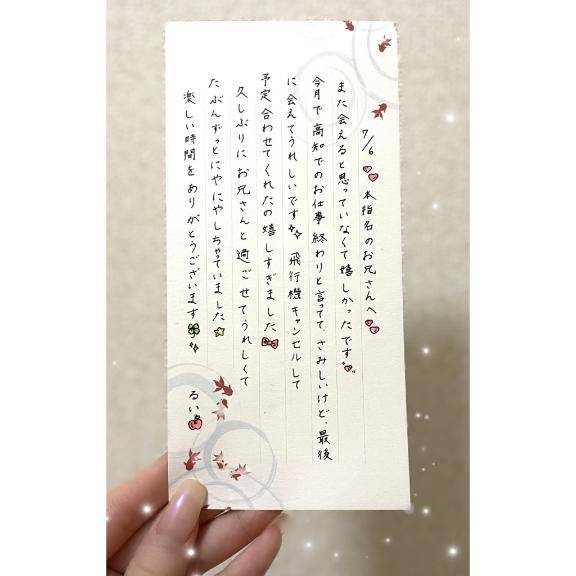 7/6 本指名のお兄さんへ
また会えると思っていなくて嬉しかったです
今月で高知でのお仕事終わりと言ってて、さみしいけど、最後
に会えてうれしいです 飛行機キャンセルして
予定合わせてくれたの嬉しすぎました
久しぶりにお兄さんと過ごせてうれしくて
たぶんずっとにやにやしちゃっていました
楽しい時間をありがとうございます
るい